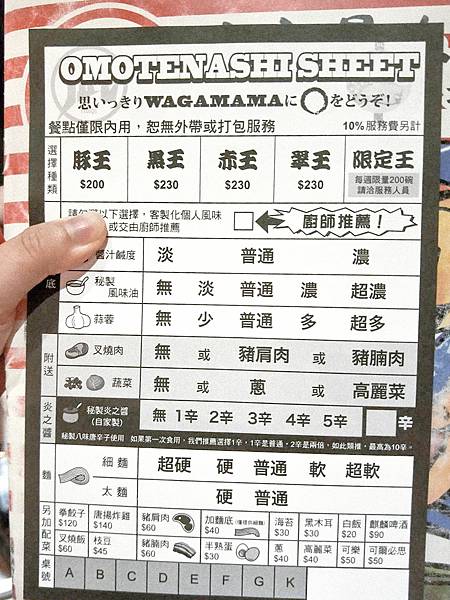 OMOTENASHI SHEET
思いっきりWAGAMAMAに〇をどうぞ!
餐點僅限內用,恕無外帶或打包服務 10%服務費另計
選擇種類 豚王 $200 黑王 $230 赤王 $230 翠王 $230 限定王 每週限量200碗 請洽服務人員
以下選擇,客製化個人風味
或交由廚師推薦 廚師推薦!
底
醬汁鹹度 淡 普通 濃
秘製風味油 無 淡 普通 濃 超濃
蒜蓉 無 少 普通 多 超多
附送
叉燒肉 無 或 豬肩肉 或 豬腩肉
蔬菜 無 或 蔥 或 高麗菜
炎之醬
秘製炎之醬(自家製) 無 1辛 2辛 3辛 4辛 5辛 辛
秘製八味唐辛子使用 如果第一次食用,我們推薦選擇1辛,1辛是普通,2辛是兩倍,如此類推,最高為10辛。
麵
細麵 超硬 硬 普通 軟 超軟
太麵 硬 普通
另加配菜
拳餃子 $120 唐揚炸雞 $140 豬肩肉 $60 加麵底 $40 海苔 $30 黑木耳 $30 白飯 $20 麒麟啤酒 $90
叉燒飯 $60 枝豆 $45 豬腩肉 $60 半熟蛋 $30 蔥 $40 高麗菜 $40 可樂 $50 可爾必思 $50
桌號 A B C D E F G K